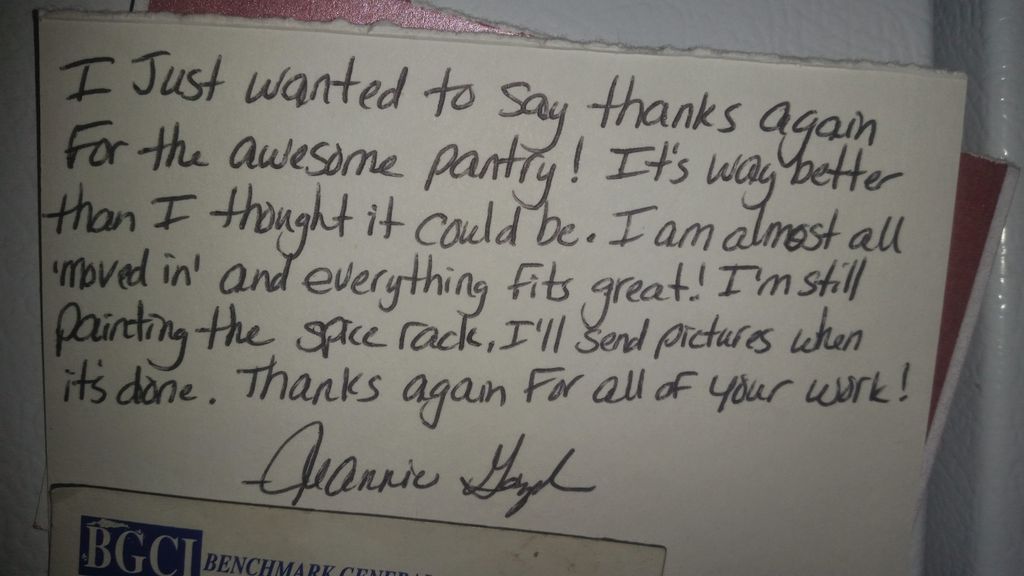 I Just wanted to say thanks again
For the awesome pantry! It's way better
than I thought it could be. I am almost all
'moved in' and everything fits great! I'm still
painting the spice rack, I'll send pictures when
it's done. Thanks again For all of your work!
Jeannie
BGCI BENCHMARK GENERA